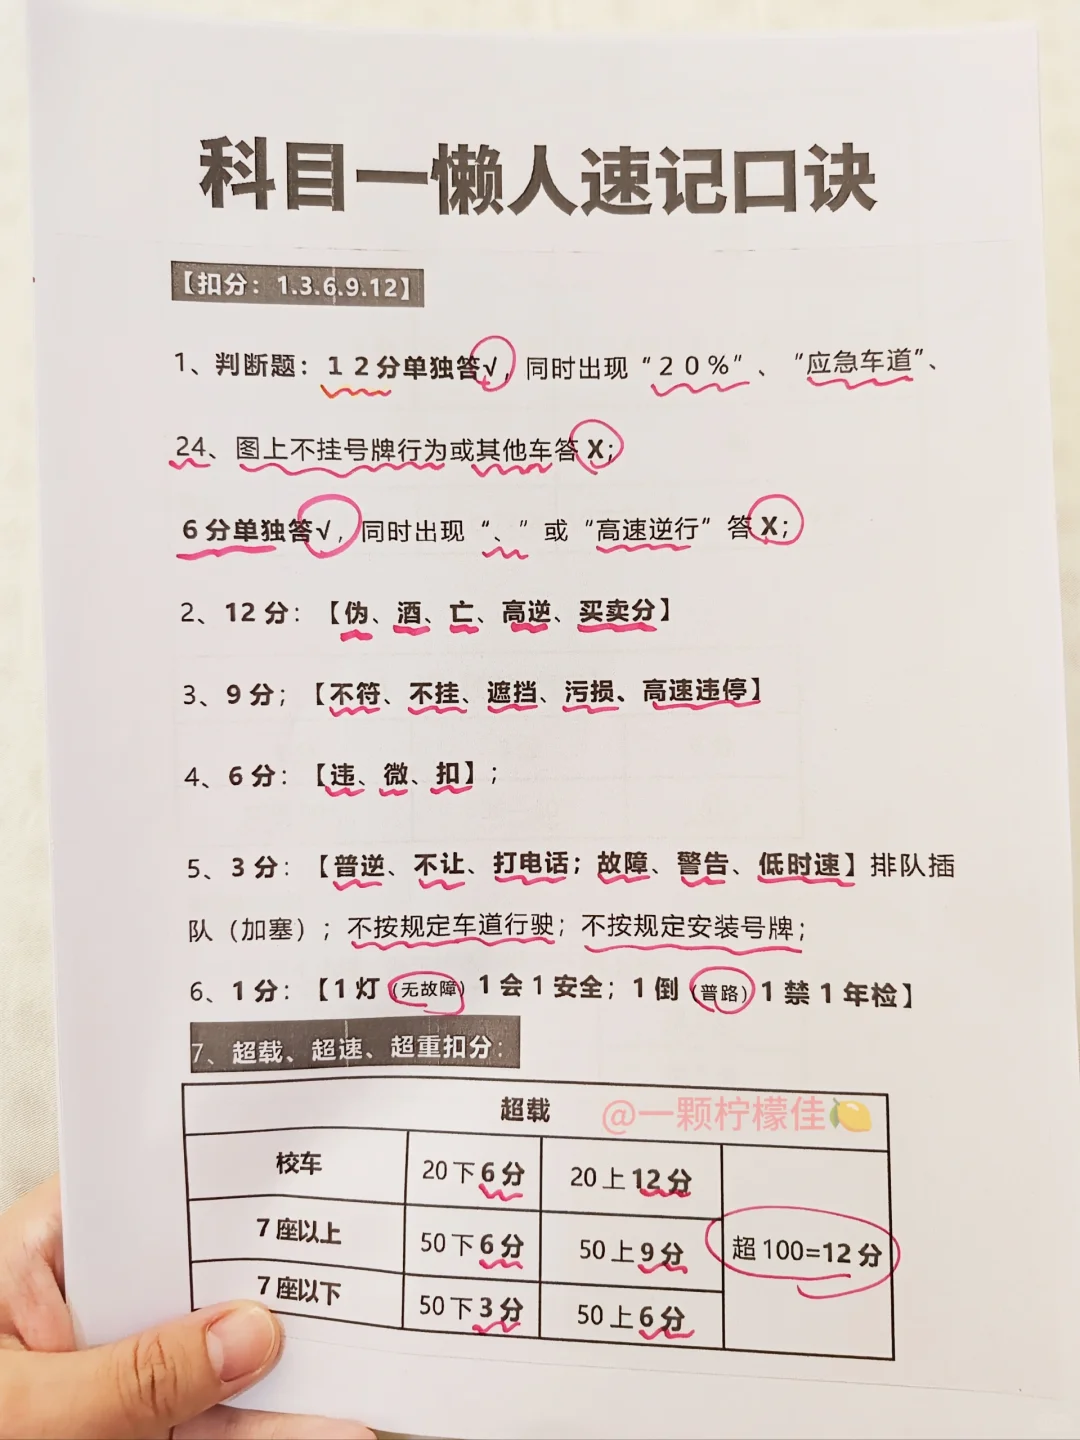 科目一懒人速记口诀
【扣分：1.3.6.9.12】
1、判断题：12分单独答√，同时出现“20%”、“应急车道”、
24、图上不挂号牌行为或其他车答X；
6分单独答√，同时出现“、”或“高速逆行”答X；
2、12分：【伪、酒、亡、高逆、买卖分】
3、9分；【不符、不挂、遮挡、污损、高速违停】
4、6分：【违、微、扣】；
5、3分：【普逆、不让、打电话；故障、警告、低时速】排队插
队（加塞）；不按规定车道行驶；不按规定安装号牌；
6、1分：【1灯（无故障）1会1安全；1倒（普路）1禁1年检】
7、超载、超速、超重扣分：
超载
@一颗柠檬佳🍋
校车 20下6分 20上12分
7座以上 50下6分 50上9分 超100=12分
7座以下 50下3分 50上6分